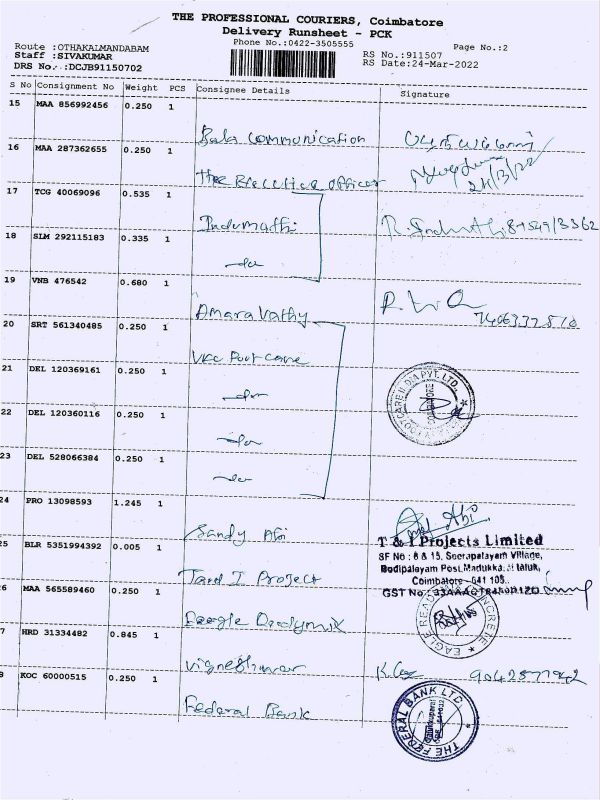 THE PROFESSIONAL COURIERS, Coimbatore
Delivery Runsheet - PCK
Phone No.:0422-3505555
Page No.:2
Route :OTHAKALMANDABAM
Staff :SIVAKUMAR
DRS No.:DCJB91150702
RS No.:911507
RS Date:24-Mar-2022
S No Consignment No Weight PCS Consignee Details Signature
15 MAA 856992456 0.250 1
Bala Communication
16 MAA 287362655 0.250 1
The Officer
24/3/22
17 TCG 40069096 0.535 1
Indumathi
18 SLM 292115183 0.335 1
do
19 VNB 476542 0.680 1
Amaravathy
20 SRT 561340485 0.250 1
VKC Foot care
21 DEL 120369161 0.250 1
do
22 DEL 120360116 0.250 1
do
23 DEL 528066384 0.250 1
do
24 PRO 13098593 1.245 1
Sandy Abi
25 BLR 5351994392 0.005 1
T and I Project
T & I Projects Limited
SF No : 8 & 15, Seerapalayam Village,
Bodipalayam Post, Madukkarai taluk,
Coimbatore - 641 105.
GST No
6 MAA 565589460 0.250 1
Eagle Readymix
EAGLE READY CONCRETE
7 HRD 31334482 0.845 1
Vigneshwar
9042577942
8 KOC 60000515 0.250 1
Federal Bank
THE FEDERAL BANK LTD.